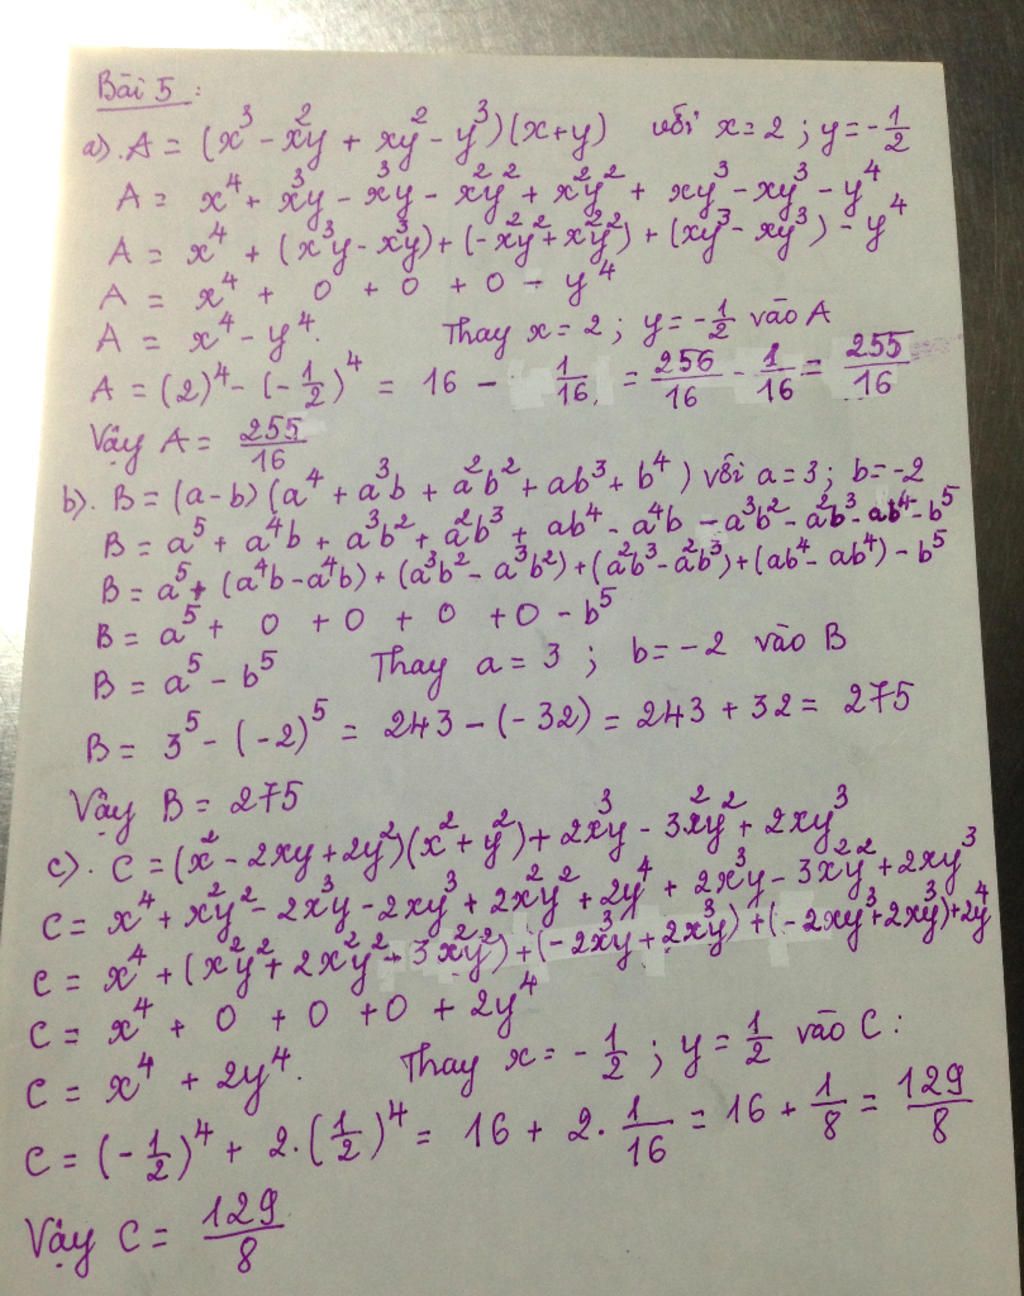 Bài 5 :
a). A = (x³ - x²y + xy² - y³)(x+y) với x = 2 ; y = -1/2
A = x⁴ + x³y - x³y - x²y² + x²y² + xy³ - xy³ - y⁴
A = x⁴ + (x³y - x³y) + (-x²y² + x²y²) + (xy³ - xy³) - y⁴
A = x⁴ + 0 + 0 + 0 - y⁴
A = x⁴ - y⁴. Thay x = 2 ; y = -1/2 vào A
A = (2)⁴ - (-1/2)⁴ = 16 - 1/16 = 256/16 - 1/16 = 255/16
Vậy A = 255/16
b). B = (a-b)(a⁴ + a³b + a²b² + ab³ + b⁴) với a = 3 ; b = -2
B = a⁵ + a⁴b + a³b² + a²b³ + ab⁴ - a⁴b - a³b² - a²b³ - ab⁴ - b⁵
B = a⁵ + (a⁴b - a⁴b) + (a³b² - a³b²) + (a²b³ - a²b³) + (ab⁴ - ab⁴) - b⁵
B = a⁵ + 0 + 0 + 0 + 0 - b⁵
B = a⁵ - b⁵ Thay a = 3 ; b = -2 vào B
B = 3⁵ - (-2)⁵ = 243 - (-32) = 243 + 32 = 275
Vậy B = 275
c). C = (x² - 2xy + 2y²)(x² + y²) + 2x³y - 3x²y² + 2xy³
C = x⁴ + x²y² - 2x³y - 2xy³ + 2x²y² + 2y⁴ + 2x³y - 3x²y² + 2xy³
C = x⁴ + (x²y² + 2x²y² - 3x²y²) + (-2x³y + 2x³y) + (-2xy³ + 2xy³) + 2y⁴
C = x⁴ + 0 + 0 + 0 + 2y⁴
C = x⁴ + 2y⁴. Thay x = -1/2 ; y = 1/2 vào C :
C = (-1/2)⁴ + 2.(1/2)⁴ = 16 + 2. 1/16 = 16 + 1/8 = 129/8
Vậy C = 129/8